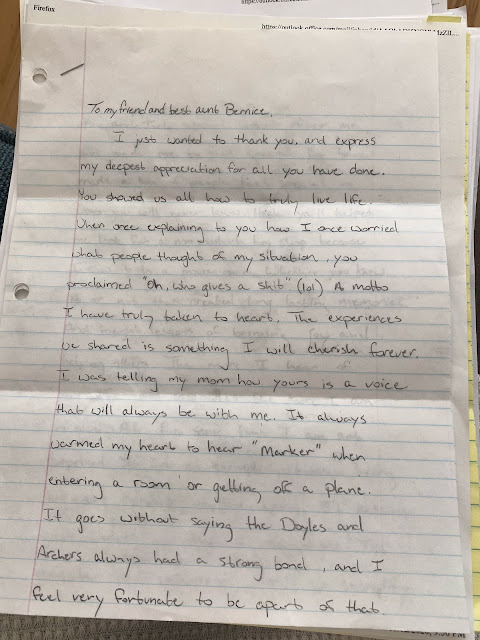 Firefox
To my friend and best aunt Bernice,
I just wanted to thank you, and express
my deepest appreciation for all you have done.
You showed us all how to truly live life.
When once explaining to you how I once worried
what people thought of my situation, you
proclaimed "Oh, who gives a shit" (lol) A motto
I have truly taken to heart. The experiences
we shared is something I will cherish forever.
I was telling my mom how yours is a voice
that will always be with me. It always
warmed my heart to hear "Marker" when
entering a room or getting off a plane.
It goes without saying the Doyles and
Archers always had a strong bond, and I
feel very fortunate to be apart of that.